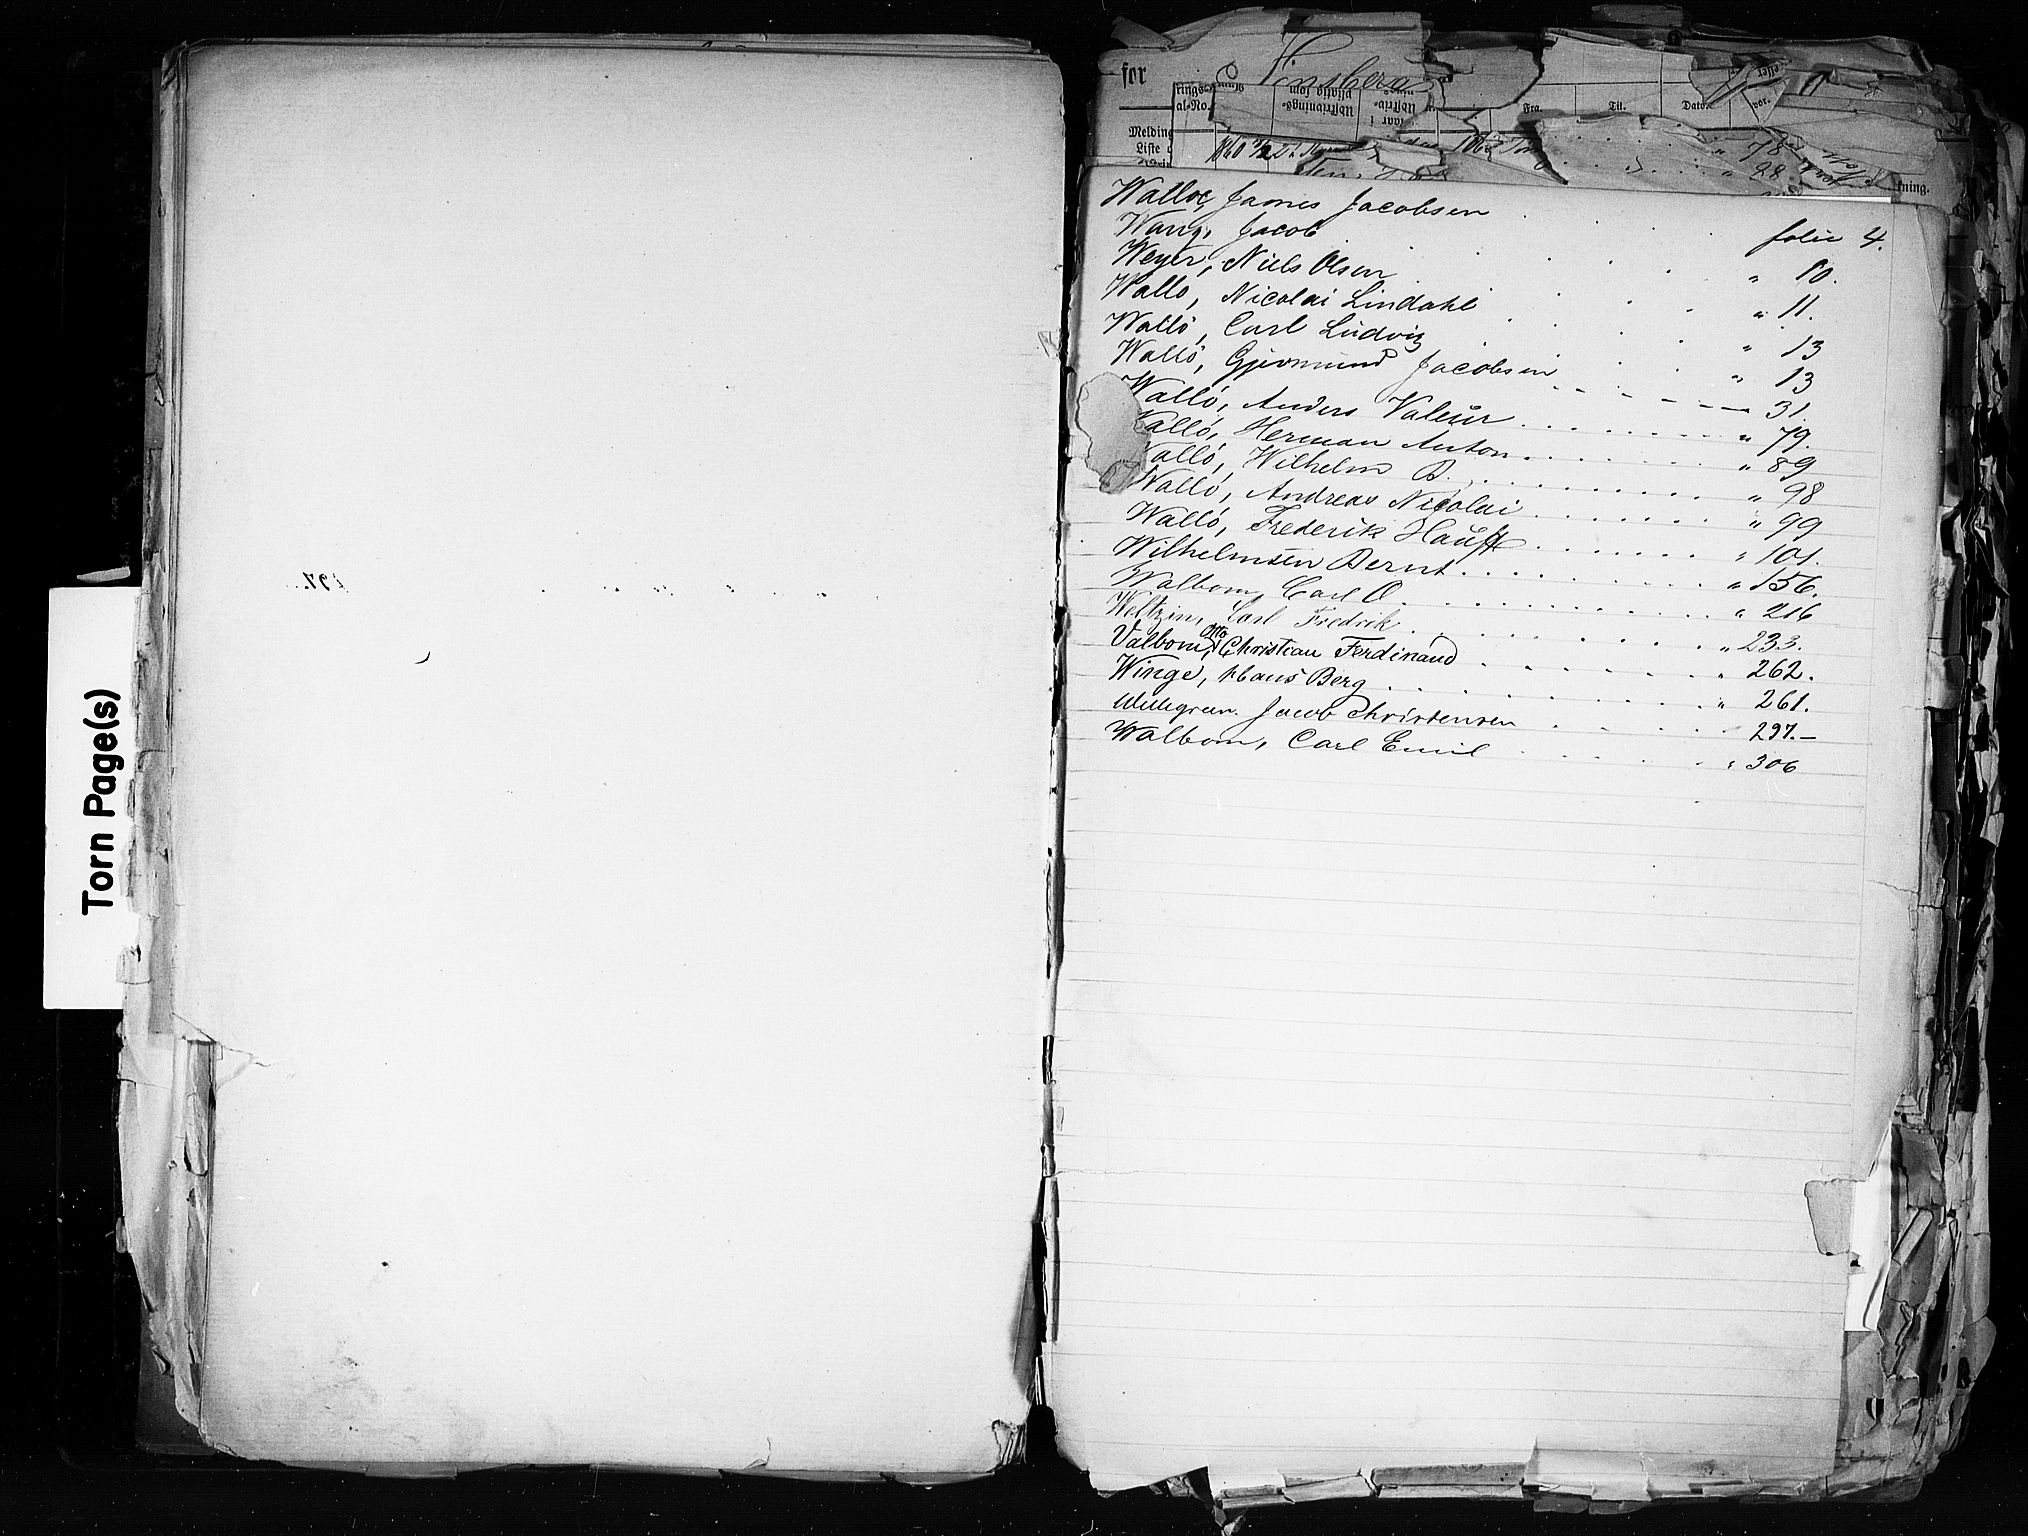 Torn Page(s)
for
Tinsberg
Fra.
Til.
Dato.
Melding
Liste
78
98
ning.
Walloe, James Jacobsen . . . folio 4.
Wang, Jacob . . . " 10.
Weyer, Niels Olsen . . . " 11.
Wallo, Nicolai Lindahl . . . " 13
Wallö, Carl Ludvig . . . " 13
Wallö, Gjermund Jacobsen - - - - 31.
Walló, Anders Valeur . . . " 79.
Walló, Herman Anton . . . " 89
Walló, Wilhelm B. . . . " 98
Walló, Andreas Nicolai . . . " 99
Walló, Frederik Hauff . . . " 101.
Wilhelmsen Bernt . . . " 156.
Walbom, Carl O. . . . " 216
Weltzin, Carl Fredrik . . . " 233.
Valbom, Otto Christian Ferdinand . . . " 262.
Winge, Hans Berg . . . " 261.
Jacob Christensen . . . 297.—
Walbom, Carl Emil . . . " 306